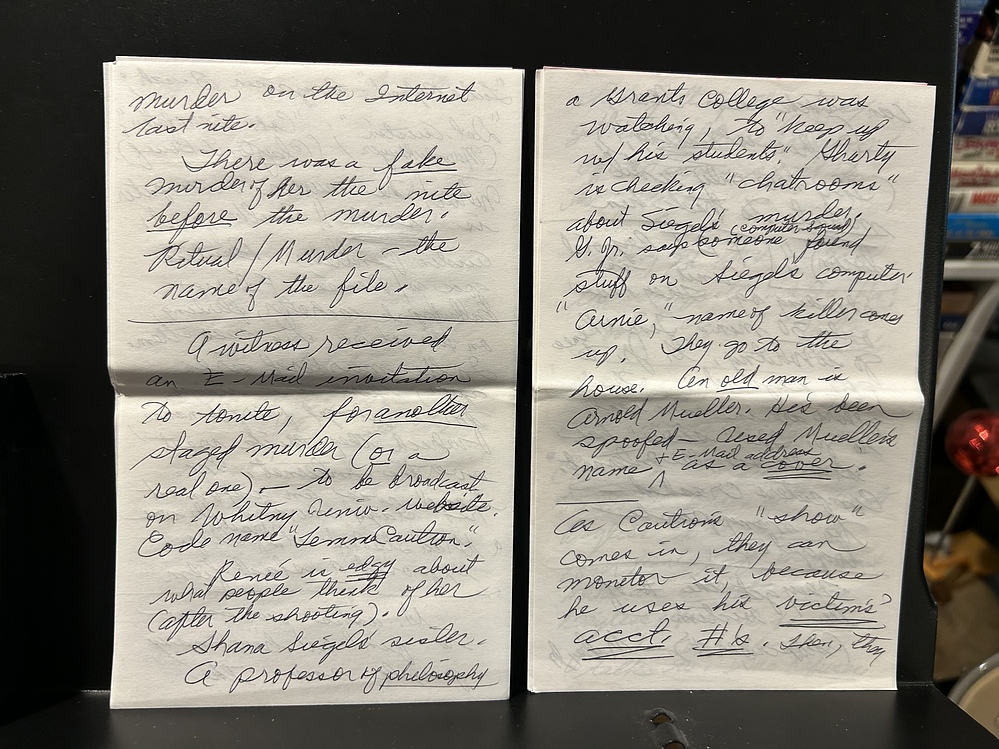 murder on the Internet
last nite.
There was a fake
murder of her the nite
before the murder.
Ritual / Murder - the
name of the file.
A witness received
an E-Mail invitation
to tonite, for another
staged murder (or a
real one) - to be broadcast
on Whitny Univ. website.
Code name "Lemmo Caution."
Renee is edgy about
what people think of her
(after the shooting).
Shana Siegels' sister.
A professor of philosophy
a Grants College was
watching, to "keep up
w/ his students." Sharty
is checking "chatrooms"
about Siegel's murder.
(computer squad)
G. Jr. says someone found
stuff on Siegel's computer.
"Arnie," - name of killer comes
up. They go to the
house. An old man is
Arnold Mueller. He's been
spoofed - used Mueller's
+ E-Mail address
name as a cover.
As Caution's "show"
comes in, they can
monetor it, because
he uses his victim's
acct. #'s. Then, they